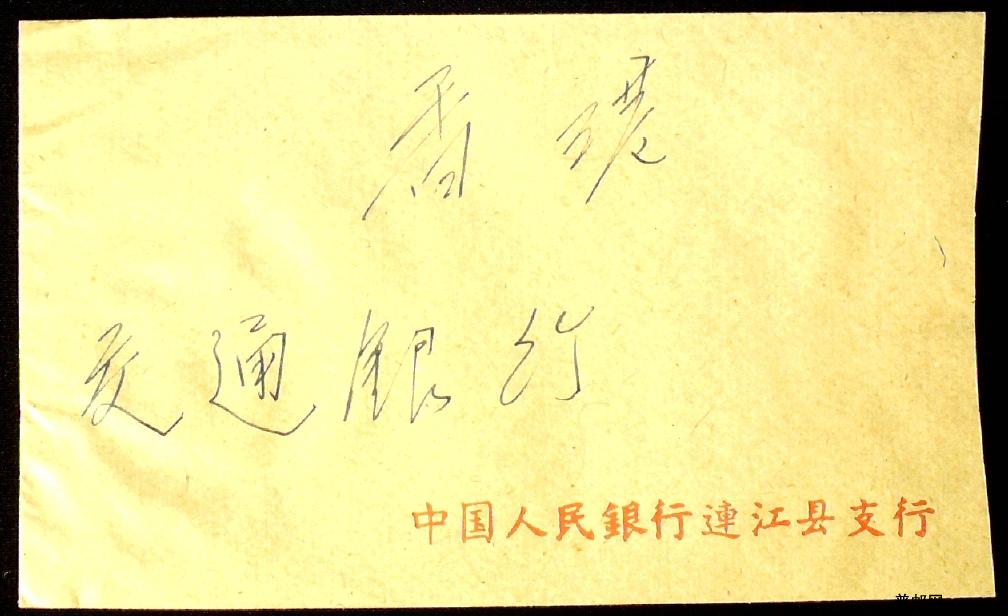 香港
交通銀行
中国人民銀行連江县支行